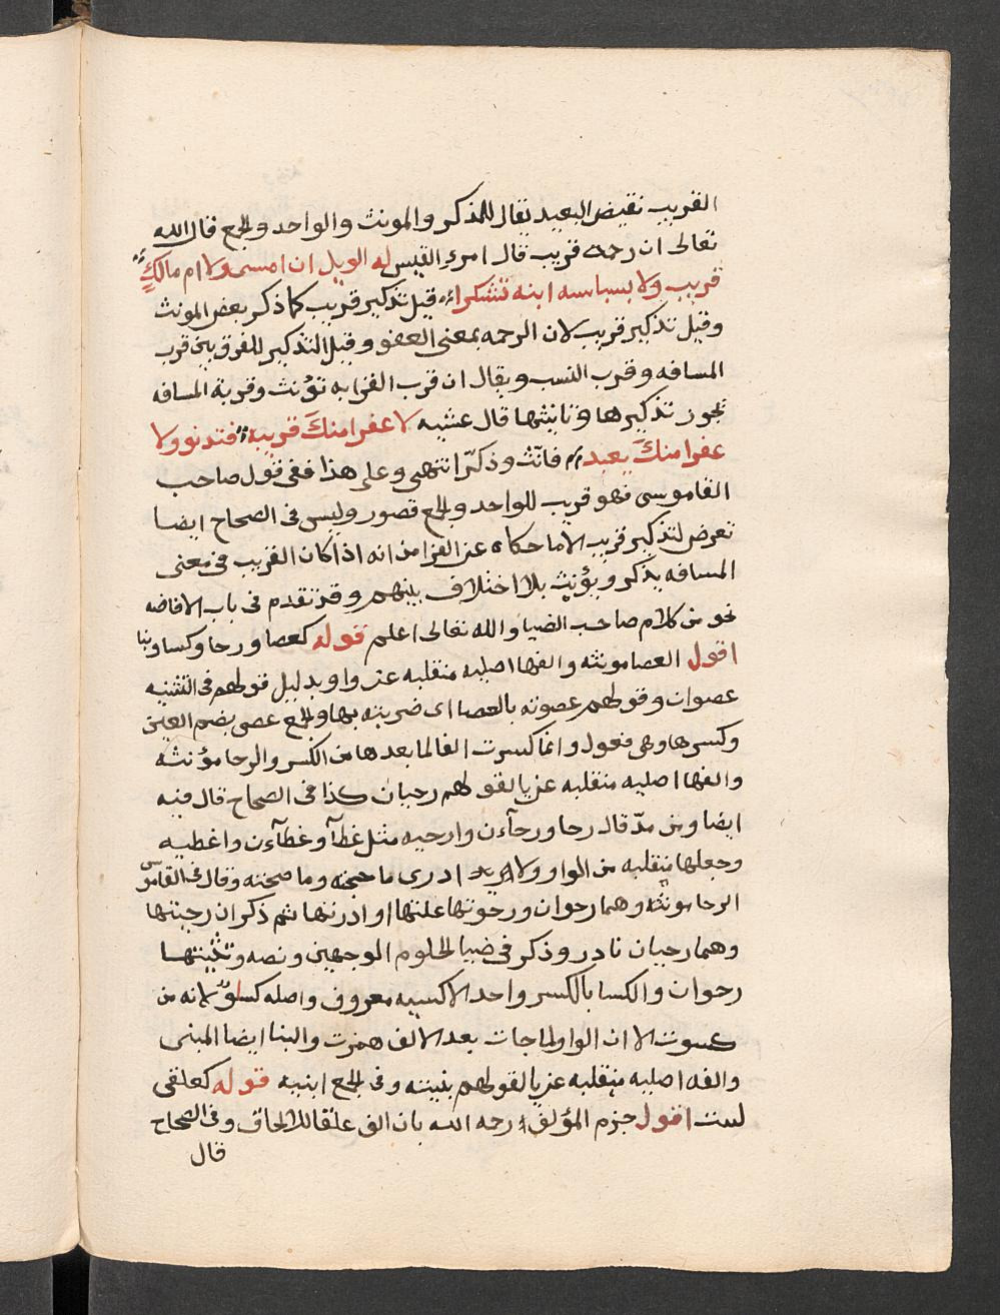 القريب نقيض البعيد يقال للمذكر والمونث والواحد والجمع قال الله
تعالى ان رحمه قريب قال امرء القيس له الويل ان امسى ولا ام مالك
قريب ولا بسباسه ابنه تشكرا قيل تذكير قريب كما ذكر بعض المونث
وقيل تذكير قريب لان الرحمه بمعنى العفو وقيل التذكير للفرق بين قرب
المسافه وقرب النسب ويقال ان قرب القرابه تؤنث وقربة المسافه
يجوز تذكيرها وتانيثها قال عشيه لا عفرا منكَ قريبه فتدنو ولا
عفرا منكَ بعيد فانّث وذكّر انتهى وعلى هذا ففى قول صاحب
القاموسى فهو قريب للواحد والجمع قصور وليس فى الصحاح ايضا
تعرض لتذكير قريب الا ما حكاه عن الفرا من انه اذا كان القريب فى معنى
المسافه يذكر ويؤنث بلا اختلاف بينهم وقد تقدم فى باب الافاضه
نحو من كلام صاحب الضيا والله تعالى اعلم قوله كعصا ورحا وكسا وبنا
اقول العصا مونثه والفها اصليه منقلبه عن واو بدليل قولهم فى التثنيه
عصوان وقولهم عصوته بالعصا اى ضربته بها والجمع عصى بضم العين
وكسرها وهى فعول وانما كسرت الفا لما بعدها من الكسر والرحا مؤنثه
والفها اصليه منقلبه عن يا لقولهم رحيان كذا فى الصحاح قال فيه
ايضا ومن مدّ قال رحا ورحآءن وارحيه مثل غطآ وغطآءن واغطيه
وجعلها منقلبه من الواو ولا ادرى ما حجته وما صحته وقال فى القاموسى
الرحا مونثه وهما رحوان ورحوتها علتها او ادرتها ثم ذكر ان رحيتها
وهما رحيان نادر وذكر فى ضيا الحلوم الوجهين ونصه وتثنيتها
رحوان والكسا بالكسر واحد الاكسيه معروف واصله كساو لانه من
كسوت الا ان الواو لما جات بعد الالف همزت والبنا ايضا المبنى
والفه اصليه منقلبه عن يا لقولهم بنيته وفى الجمع ابنيه قوله كعلقى
لنبت اقول جزم المؤلف رحه الله بان الف علقا للالحاق وفى الصحاح
قال